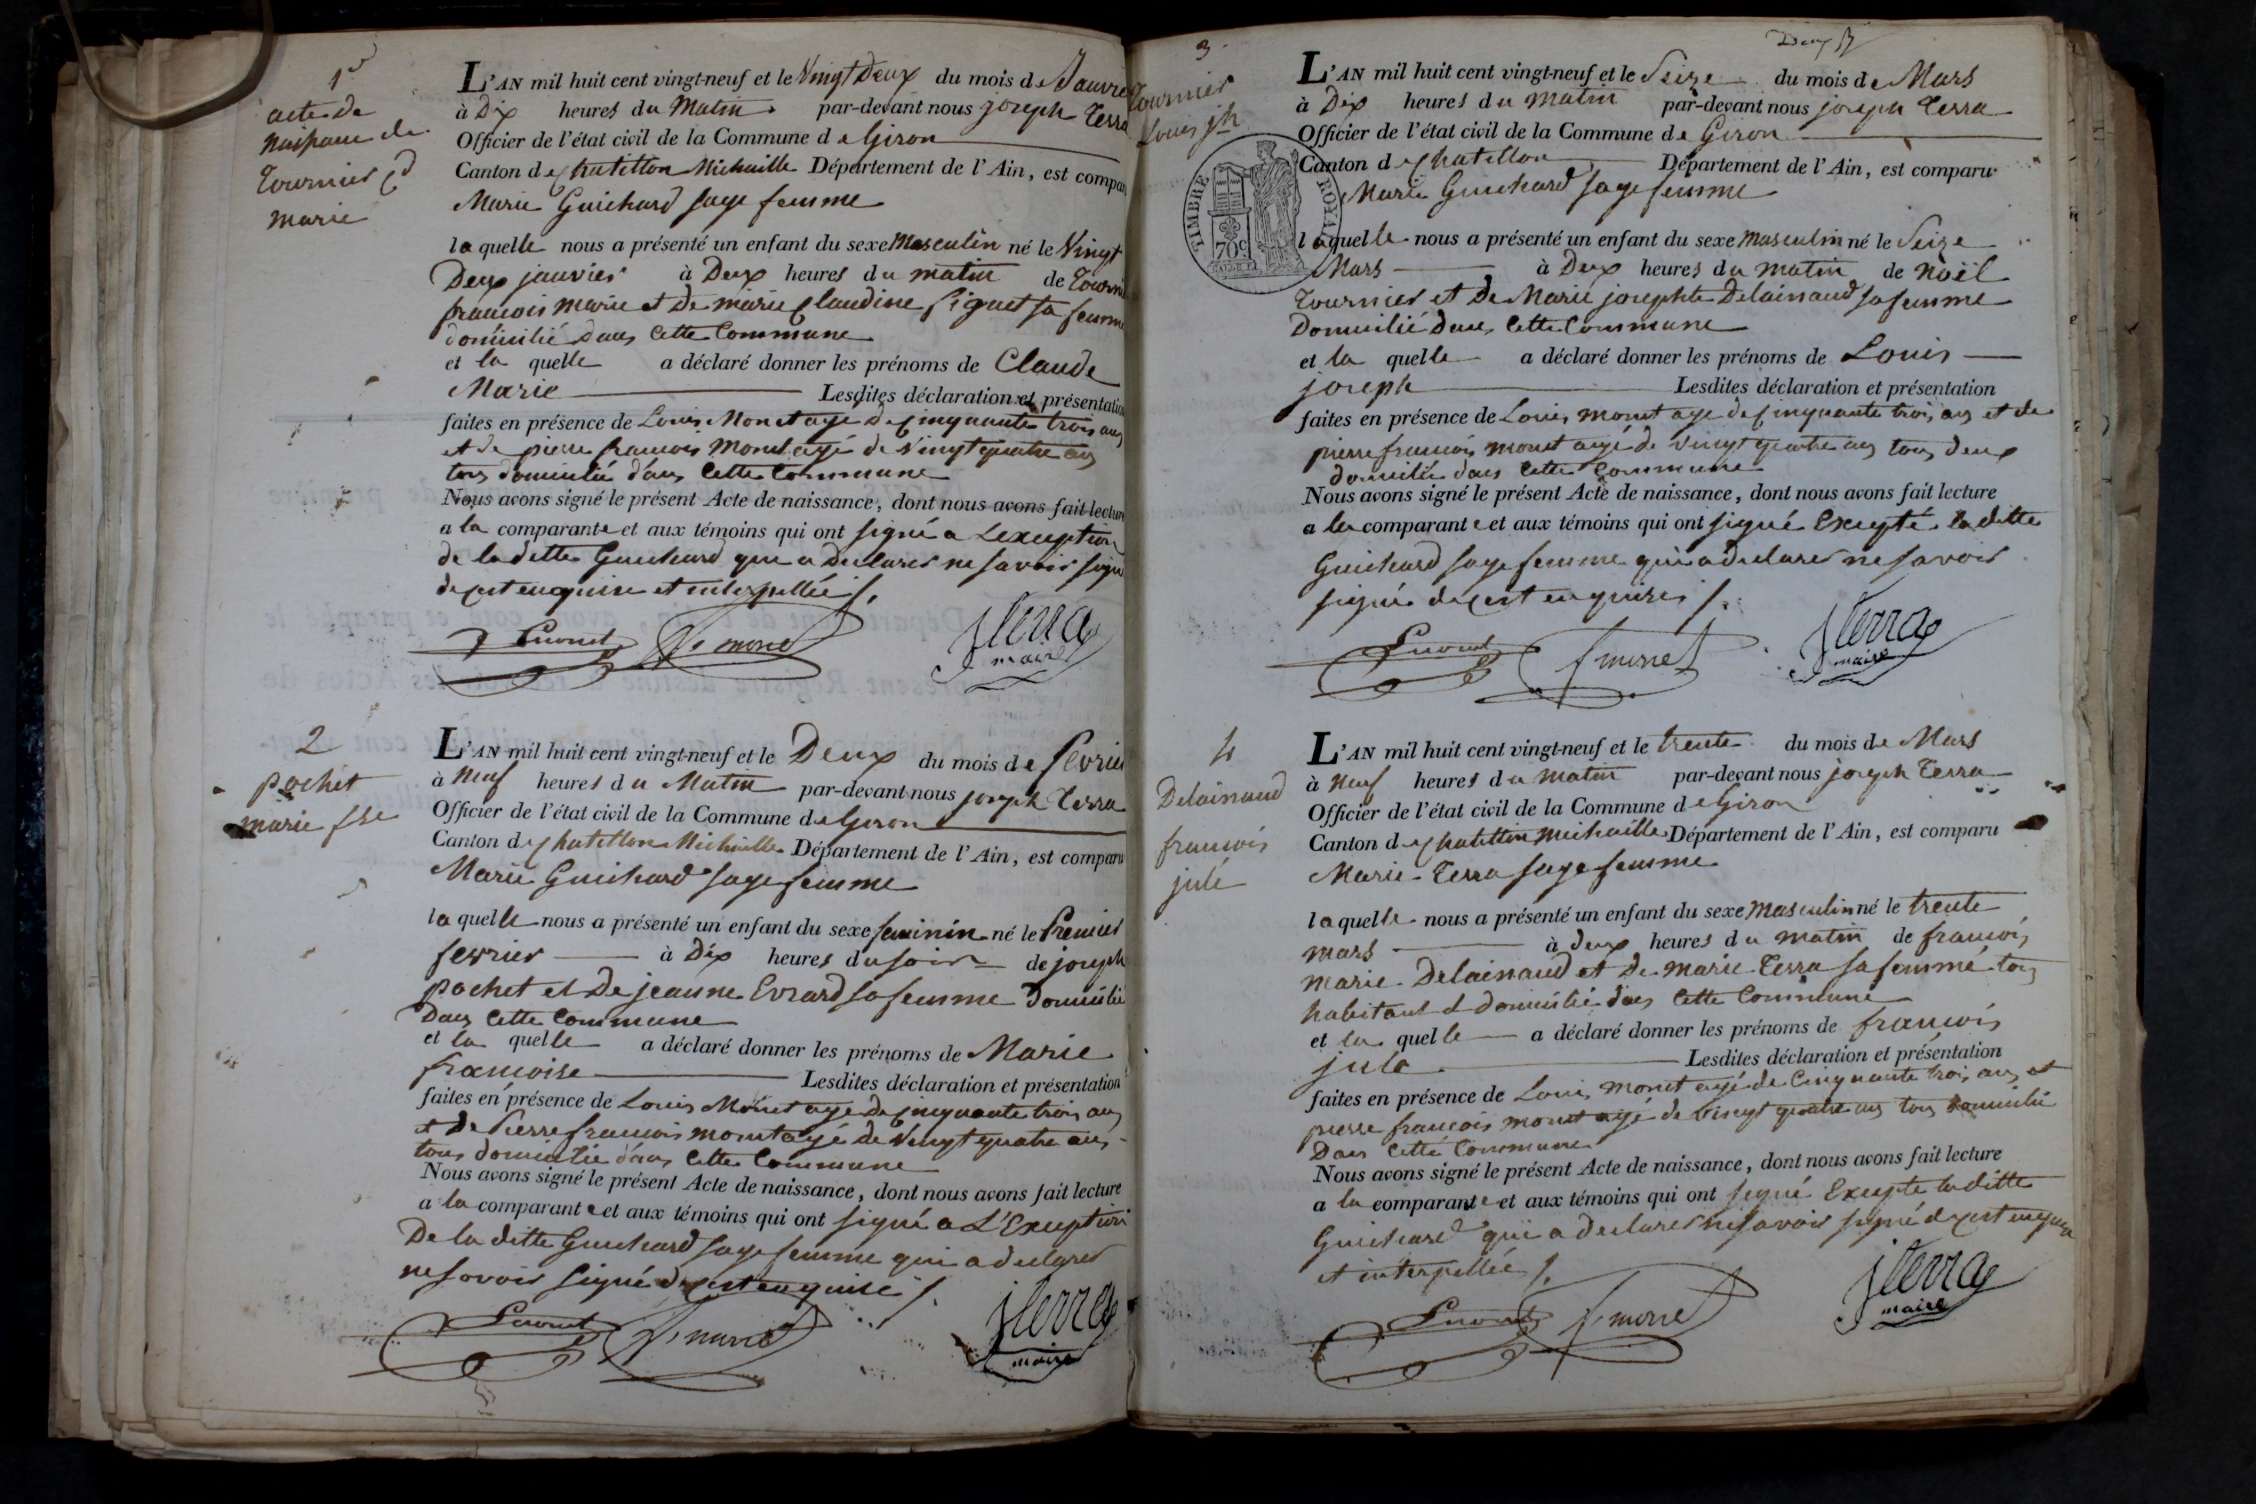 1er
acte de
naissance de
Tournier Cd
marie
L'AN mil huit cent vingt-neuf et le Vingt Deux du mois de Janvier
à Dix heures du Matin par-devant nous joseph Terra
Officier de l'état civil de la Commune de Giron
Canton de Chatillon Michaille Département de l'Ain, est comparu
Marie Guichard sage femme
laquelle nous a présenté un enfant du sexe Masculin né le Vingt
Deux janvier à Deux heures du matin de Tournier
francois marie et De marie Claudine Siguet sa femme
domicilié dans cette Commune
et la quelle a déclaré donner les prénoms de Claude
Marie Lesdites déclaration et présentation
faites en présence de Louis Monet age De Cinquante trois ans
et de pierre francois Monet agé de Vingt quatre ans
tous domicilié dans cette Commune
Nous avons signé le présent Acte de naissance, dont nous avons fait lecture
a la comparante et aux témoins qui ont signé a Lexception
de la ditte Guichard qui a Declarer ne savoir signé
de cest enquise et interpellée /.
L monet f. monet jterra
maire
2
pochet
marie fse
L'AN mil huit cent vingt-neuf et le Deux du mois de fevrier
à Neuf heures du Matin par-devant nous joseph Terra
Officier de l'état civil de la Commune de Giron
Canton de Chatillon Michaille Département de l'Ain, est comparu
Marie Guichard sage femme
laquelle nous a présenté un enfant du sexe feminin né le Premier
fevrier à Dix heures du soir de joseph
pochet et De jeanne Evrard sa femme Domicilié
Dans cette Commune
et la quelle a déclaré donner les prénoms de Marie
francoise Lesdites déclaration et présentation
faites en présence de Louis Monet age de Cinquante trois ans
et De Pierre francois monet agé de Vingt quatre ans
tous domicilie dans cette Commune
Nous avons signé le présent Acte de naissance, dont nous avons fait lecture
a la comparante et aux témoins qui ont signé a L'Exception
De la ditte Guichard sage femme qui a declarer
ne savoir signé de cest enquise /.
L monet f. monet jterra
maire
Deux
3
Tournier
Louis jh
L'AN mil huit cent vingt-neuf et le Seize du mois de Mars
à Dix heures du matin par-devant nous joseph Terra
Officier de l'état civil de la Commune de Giron
Canton de Chatillon Département de l'Ain, est comparu
Marie Guichard sage femme
TIMBRE ROYAL
70 c.
laquelle nous a présenté un enfant du sexe masculin né le Seize
Mars à Deux heures du matin de Noël
Tournier et De Marie josephte Delainaud sa femme
Domicilié dans cette Commune
et la quelle a déclaré donner les prénoms de Louis
joseph Lesdites déclaration et présentation
faites en présence de Louis monet age de Cinquante trois ans et de
pierre francois monet agé de vingt quatre ans tous deux
domicilié dans cette Commune
Nous avons signé le présent Acte de naissance, dont nous avons fait lecture
a la comparante et aux témoins qui ont signé Excepté la ditte
Guichard sage femme qui a declarer ne savoir
signé de cest enquise /.
L monet f monet jterra
maire
4
Delainaud
francois
julé
L'AN mil huit cent vingt-neuf et le trente du mois de Mars
à Neuf heures du matin par-devant nous joseph Terra
Officier de l'état civil de la Commune de Giron
Canton de Chatillon Michaille Département de l'Ain, est comparu
Marie Terra sage femme
laquelle nous a présenté un enfant du sexe Masculin né le trente
mars à deux heures du matin de francois
marie Delainaud et De marie Terra sa femme tous
habitant et domicilié dans cette Commune
et la quelle a déclaré donner les prénoms de francois
julé Lesdites déclaration et présentation
faites en présence de Louis monet agé de Cinquante trois ans et
pierre francois monet agé de vingt quatre ans tous domicilié
Dans cette Commune
Nous avons signé le présent Acte de naissance, dont nous avons fait lecture
a la comparante et aux témoins qui ont signé Excepte la ditte
Guichard qui a declarer ne savoir signé de cest enquise
et interpellée /.
L monet f. monet jterra
maire